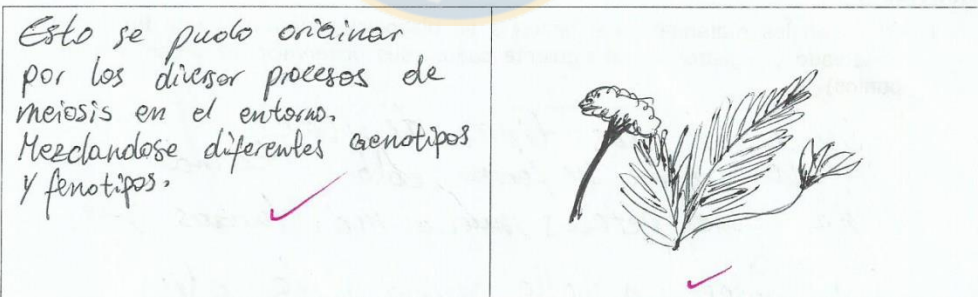 Esto se pudo oriainar
por los diversor procesos de
meiosis en el entorno.
Mezclandose diferentes Genotipos
y fenotipos.